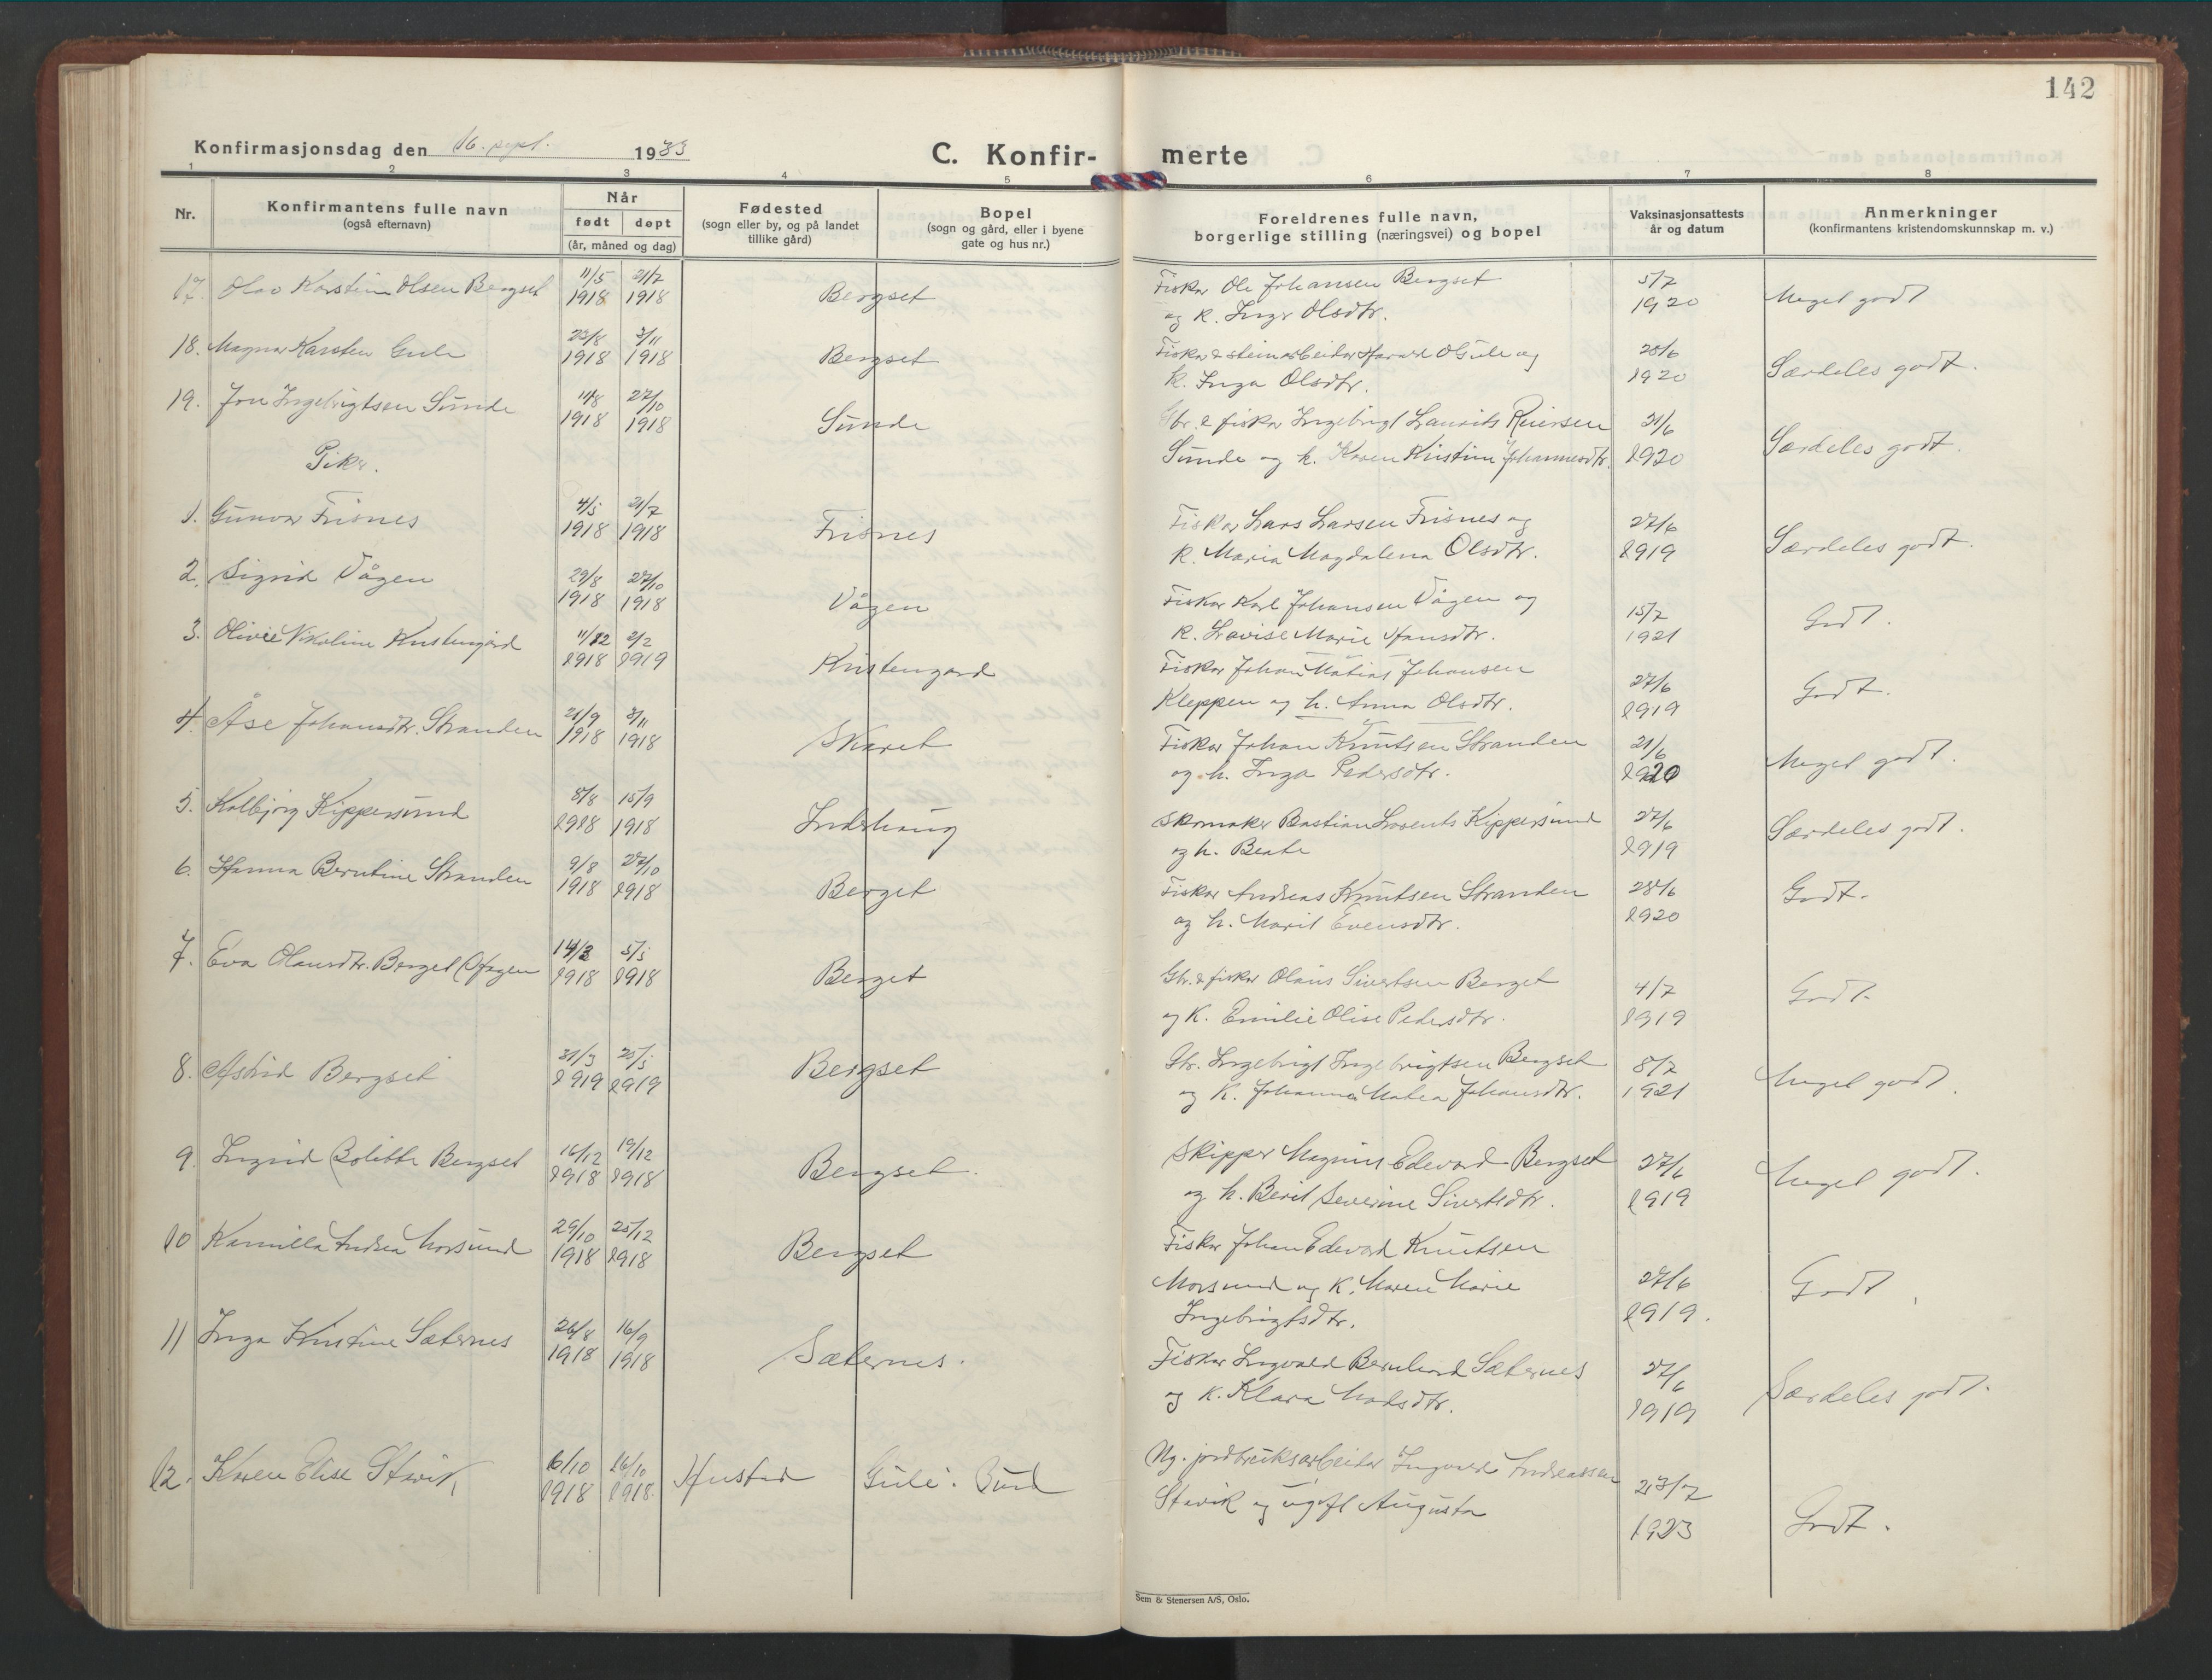 142
Konfirmasjonsdag den 16. sept. 1933
C. Konfir- merte
1 2 3 4 5 6 7 8
Nr.
Konfirmantens fulle navn
(også efternavn)
Når
født døpt
(år, måned og dag)
Fødested
(sogn eller by, og på landet
tillike gård)
Bopel
(sogn og gård, eller i byene
gate og hus nr.)
Foreldrenes fulle navn,
borgerlige stilling (næringsvei) og bopel
Vaksinasjonsattests
år og datum
Anmerkninger
(konfirmantens kristendomskunnskap m. v.)
17. Olav Karstein Olsen Bergset 11/5 1918 21/7 1918 Bergset
Fisker Ole Johansen Bergset
og k. Inga Olsdtr.
5/7 1920 Meget godt
18. Magnar Karsten Gule 23/8 1918 3/11 1918 Bergset
Fisker & steinarbeider Harald O Gule og
k. Inga Olsdtr.
28/6 1920 Særdeles godt.
19. Jon Ingebrigtsen Sunde 11/8 1918 27/10 1918 Sunde
Gbr. & fisker Ingebrigt Laurits Reiersen
Sunde og h. Karen Kristine Johannesdtr.
21/6 1920 Særdeles godt.
Piker.
1. Gunvor Frisnes 4/5 1918 21/7 1918 Frisnes
Fisker Lars Larsen Frisnes og
k. Maria Magdalena Olsdtr.
27/6 1919 Særdeles godt.
2. Sigrid Vågen 29/8 1918 27/10 1918 Vågen
Fisker Karl Johansen Vågen og
k. Lovise Marie Hansdtr.
15/7 1921 Godt.
3. Olivie Nikoline Kristengård 11/12 1918 2/2 1919 Kristengard
Fisker Johan Matias Johansen
Kleppen og h. Anna Olsdtr.
27/6 1919 Godt.
4. Åse Johansdtr. Stranden 21/9 1918 3/11 1918 Skaret
Fisker Johan Knutsen Stranden
og h. Inga Pedersdtr.
21/6 1920 Meget godt.
5. Kolbjørg Kippersund 8/8 1918 15/9 1918 Inderhaug
Skomaker Bastian Lorents Kippersund
og h. Beate
27/6 1919 Særdeles godt.
6. Hanna Berntine Stranden 9/8 1918 27/10 1918 Berget
Fisker Andreas Knutsen Stranden
og h. Marit Evensdtr.
28/6 1920 Godt.
7. Eva Olausdtr. Berget (Hagen 14/3 1918 5/5 1918 Berget
Gbr. & fisker Olaus Sivertsen Berget
og K. Emilie Olise Pedersdtr.
4/7 1919 Godt.
8. Astrid Bergset 31/3 1919 25/5 1919 Bergset
Gbr. Ingebrigt Ingebrigtsen Bergset
og K. Johanna Matea Johansdtr.
8/7 1921 Meget godt.
9. Ingrid Bolette Bergset 16/12 1918 19/12 1918 Bergset.
Skipper Magnus Edevard Bergset
og h. Berit Severine Sivertsdtr.
27/6 1919 Meget godt.
10 Kamilla Andrea Morsund 29/10 1918 25/12 1918 Bergset
Fisker Johan Edevard Knutsen
Morsund og K. Maren Marie
Ingebrigtsdtr.
27/6 1919. Godt.
11 Inga Kristine Sæternes 26/8 1918 16/9 1918 Sæternes.
Fisker Ingvald Bernhard Sæternes
og K. Klara Madsdtr.
27/6 1919 Særdeles godt.
12. Karen Elise Stavik 6/10 1918 16/10 1918 Hustad Gule. Bud
Ug. jordbruksarbeider Ingvald Andreassen
Stavik og ug. Augusta
23/7 1923 Godt.
Sem & Stenersen A/S, Oslo.